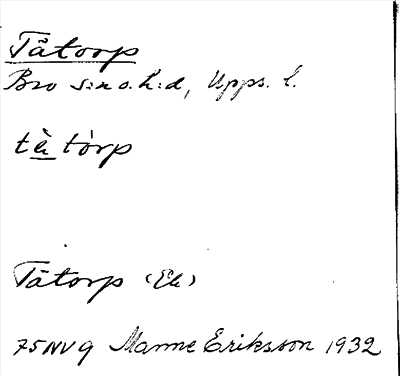 Tåtorp
Bro sn o. h:d, Upps. l.
tȧ̀ tórp
Tåtorp (Ek)
75NV9 Manne Eriksson 1932